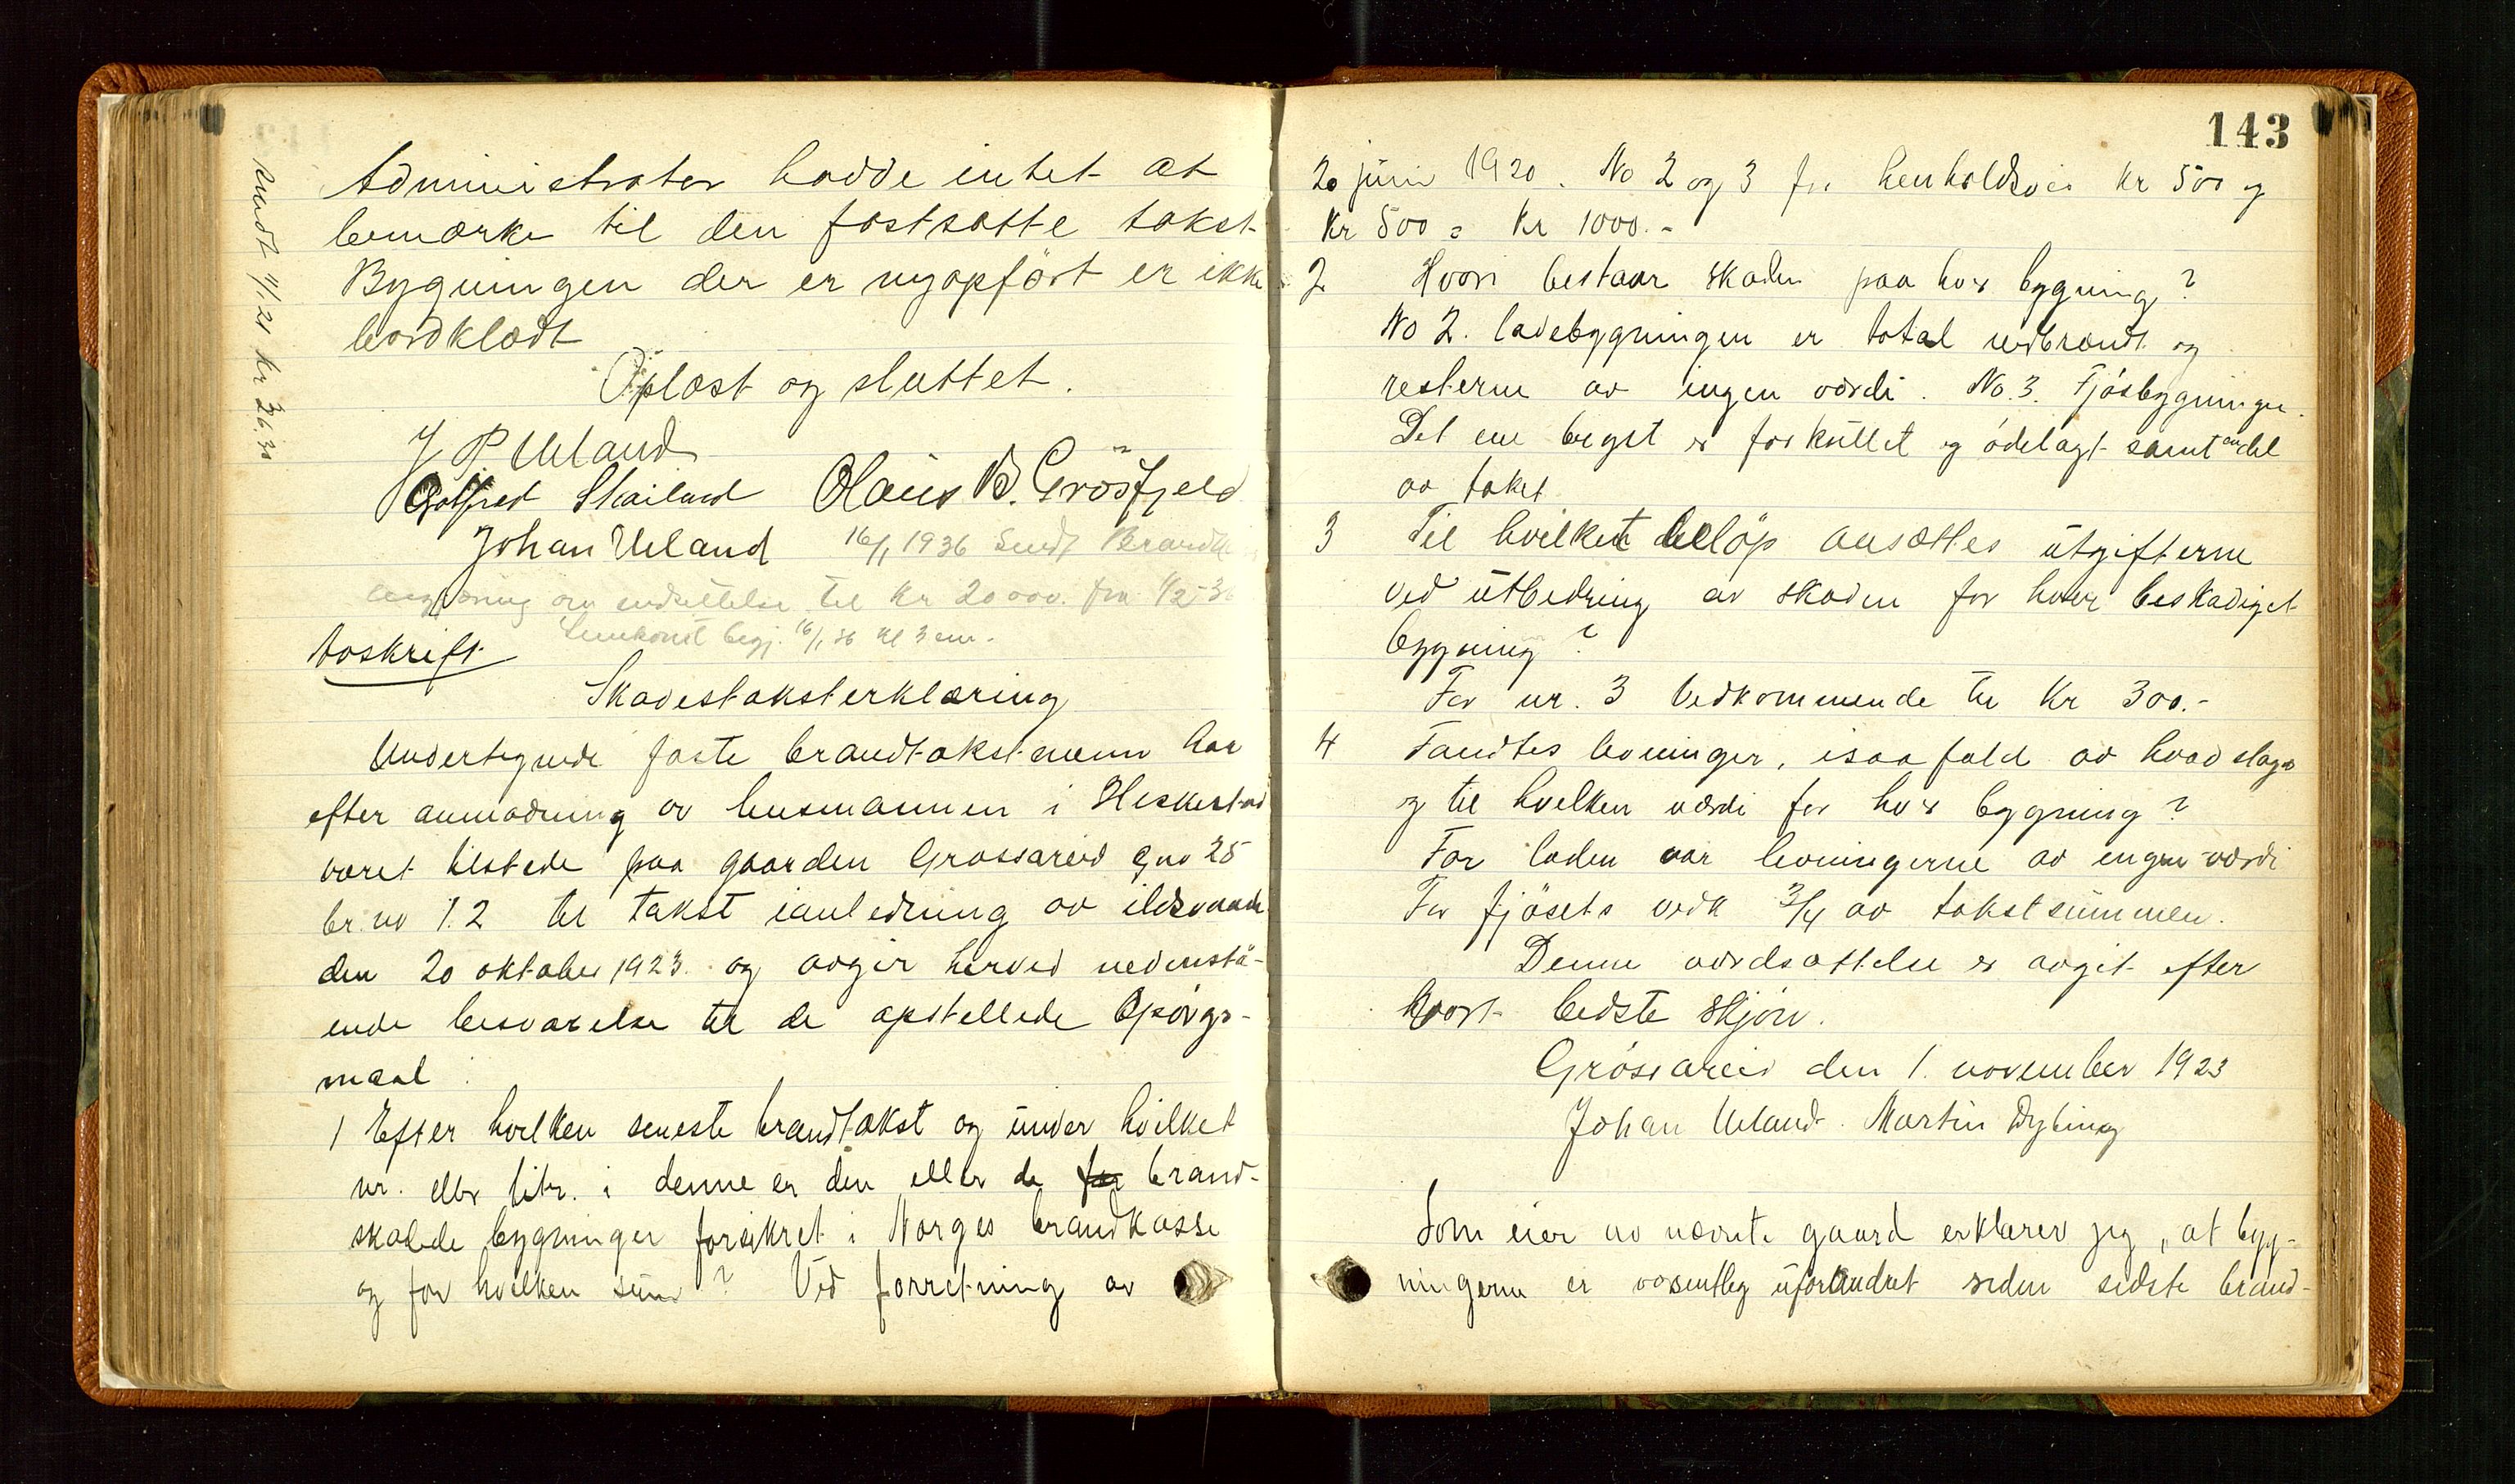 Administrator hadde intet at
bemærke til den fastsatte takst
Bygningen der er nyopført er ikke
bordklædt
Oplæst og sluttet.
J P Ueland
Gotfred Skailand Olaus B. Grøsfjeld
Johan Ueland 16/1 1936 Sendt Brandk
om nedsættelse til Kr 20000. fra 1/2-36
begj. 16/1 36 kl 3 em.
Avskrift
Skadestaksterklæring
Undertegnede faste brandtakstmenn har
efter anmodning av lensmannen i Heskestad
været tilstede paa gaarden Grøssareid gno 25
br. no 1.2 til takst i anledning av ildsvaade
den 20 oktober 1923. og avgir herved nedenstå-
ende besvarelse til de opstellede Spørgs-
maal:
1 Efter hvilken seneste brandtakst og under hvilket
nr. eller litr. i denne er den eller de for brand-
skadede bygninger forsikret i Norges brandkasse
og for hvilken sum? Ved forretning av
Sendt 11/1.21 Kr 26.30
143
20 juni 1920. No 2 og 3 for henholdsvis Kr 500 og
Kr 500 = Kr 1000.-
2 Hvori bestaar skaden paa hver bygning?
No 2. ladebygningen er total nedbrændt og
resterne av ingen værdi. No. 3. Fjøsbygningen.
Det ene beget er forkullet og ødelagt samt en del
av taket
3 Til hvilket beløp ansættes utgifterne
ved utbedring av skaden for hver beskadiget
bygning?
For nr. 3 vedkommende til Kr 300.-
4 Fandtes levninger, isaafald av hvad slags
og til hvilken værdi for hver bygning?
For laden var levningerne av ingen værdi
For fjøsets vedk 3/4 av takstsummen.
Denne værdsættelse er avgit efter
vort bedste skjøn.
Grøssareid den 1. november 1923
Johan Ueland. Martin Dybing
Som eier av nævnte gaard erklærer jeg, at byg-
ningerne er væsentlig uforandret siden sidste brand-